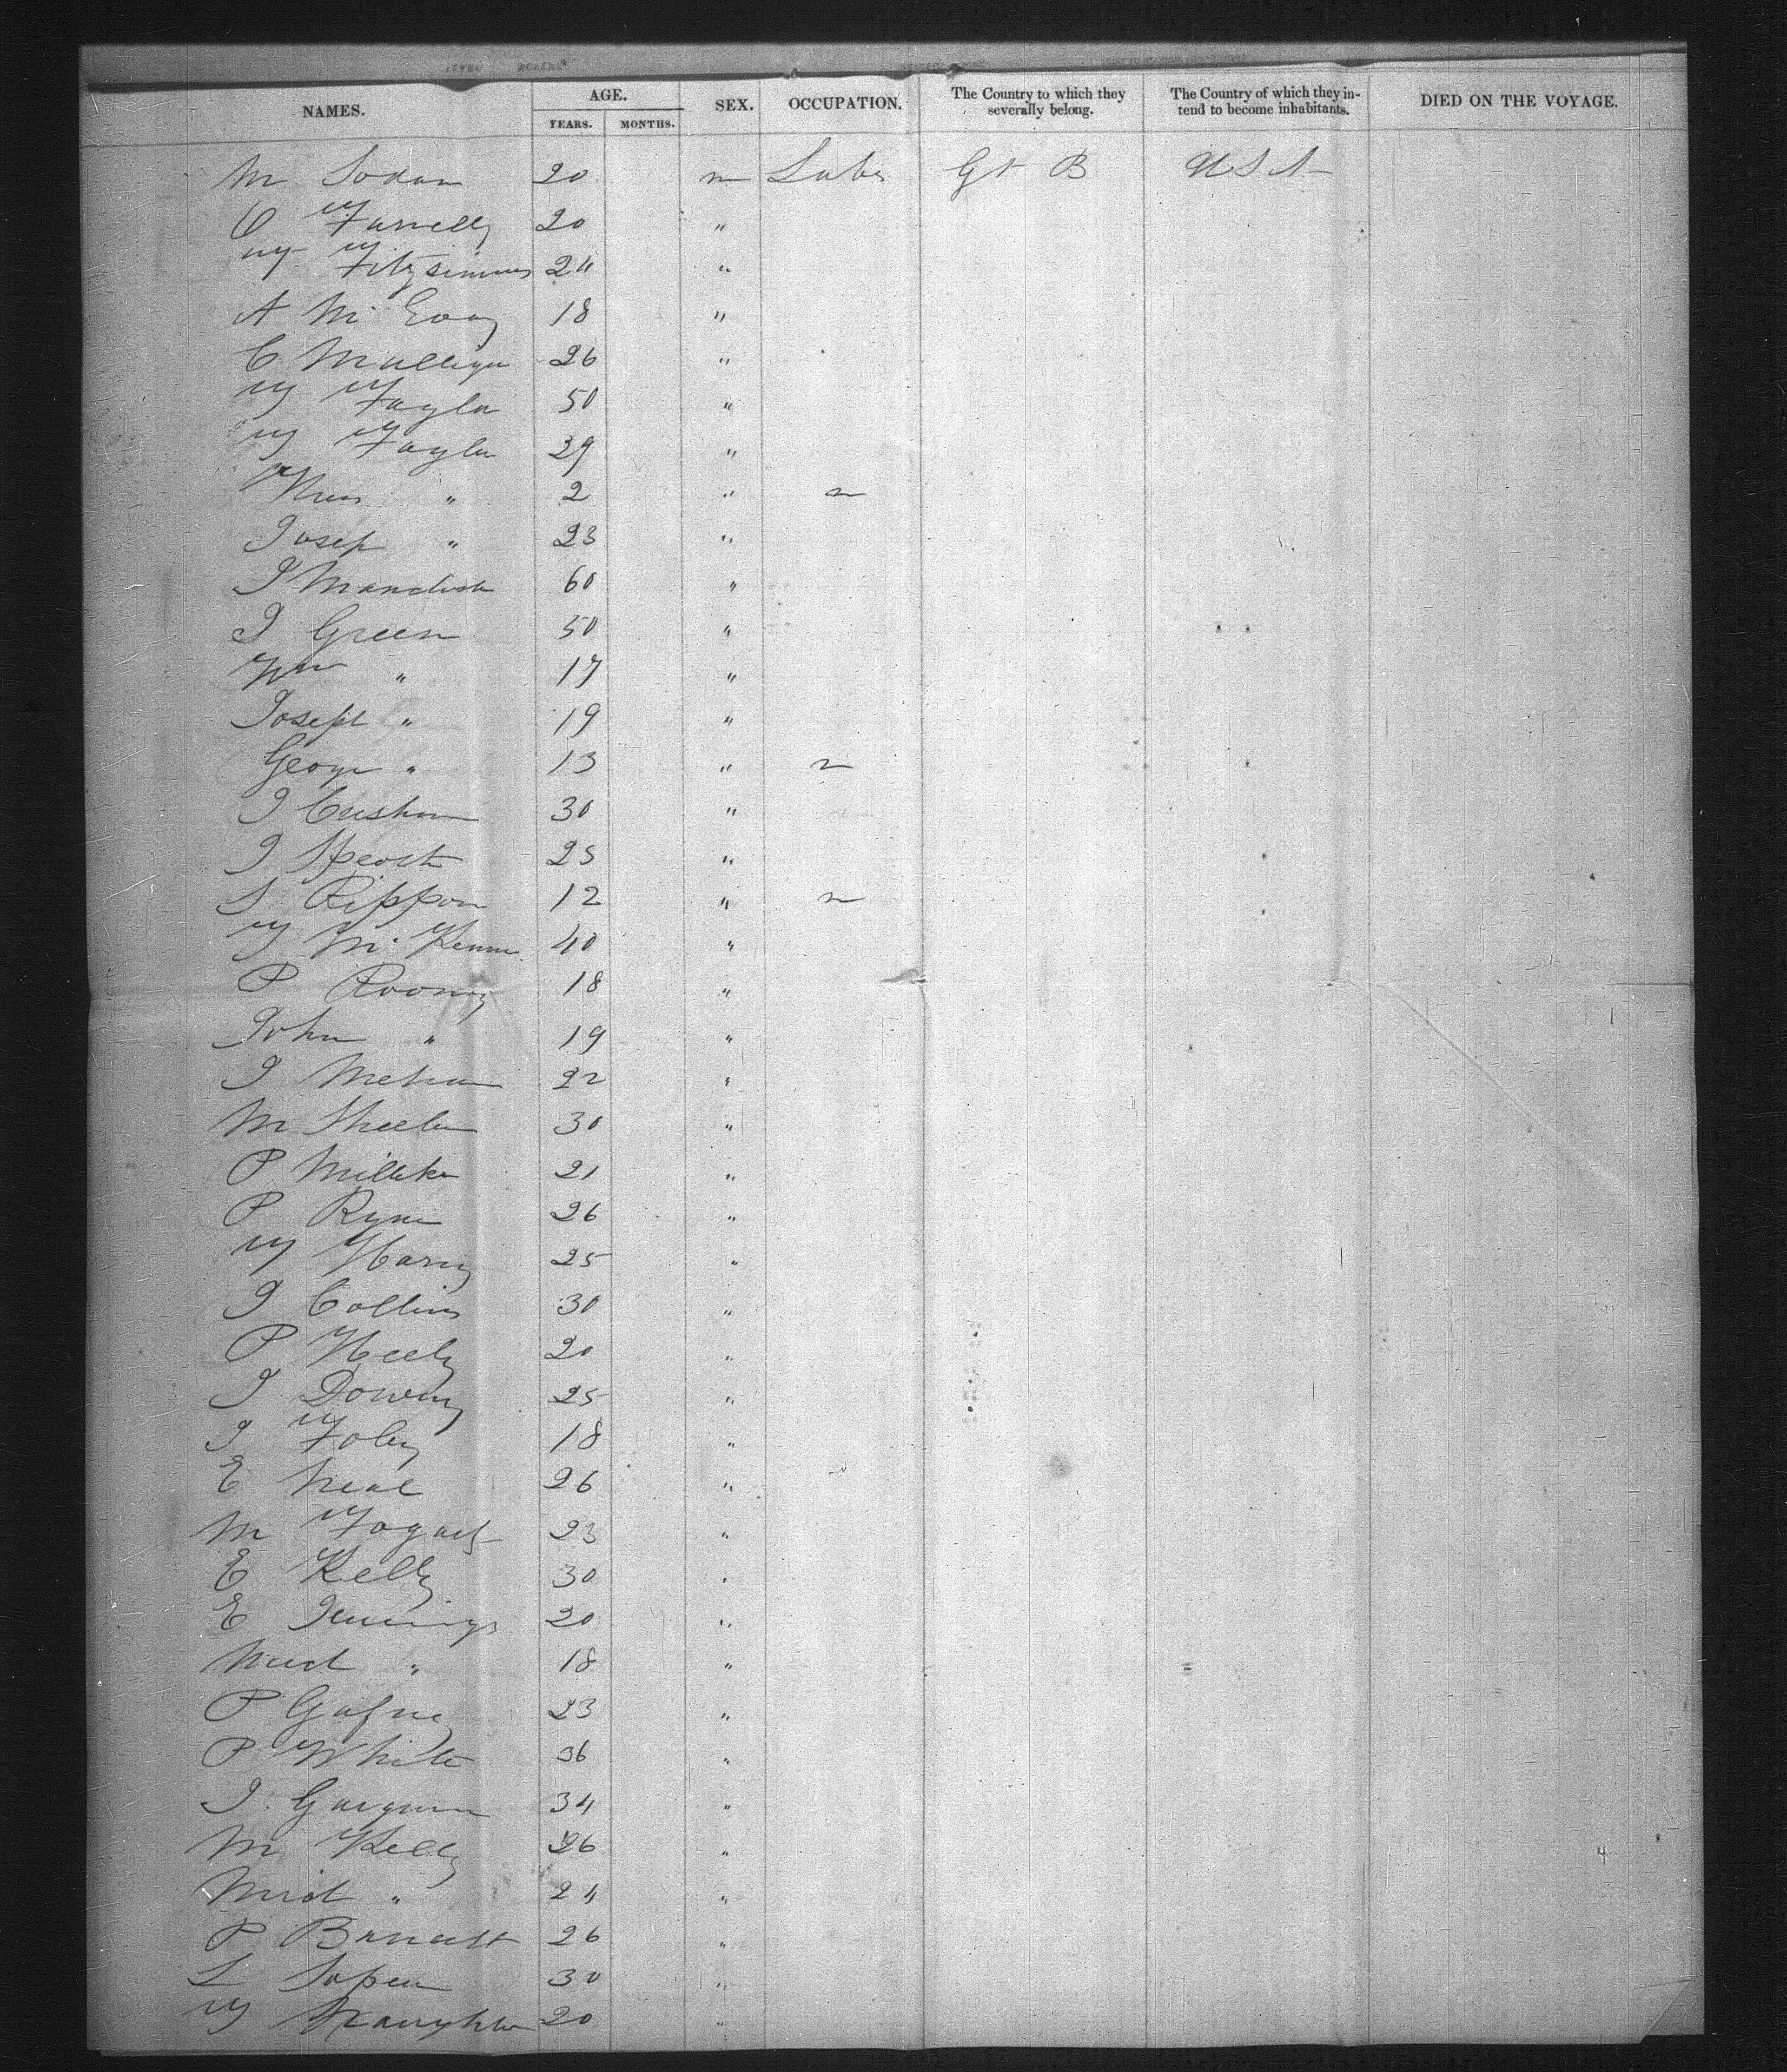 NAMES. AGE. YEARS. MONTHS. SEX. OCCUPATION. The Country to which they severally belong. The Country of which they intend to become inhabitants. DIED ON THE VOYAGE.
M 20 m Labr Gt B USA
C Farrelly 20 "
Fitzsimmons 24 "
A McEvoy 18 "
C Mulligan 26 "
Taylor 50 "
Taylor 39 "
" 2 "
Josep " 23 "
J 60 "
J Green 50 "
Wm " 17 "
Joseph " 19 "
George " 13 "
J 30 "
J 25 "
S Rippon 12 "
McKenna 40 "
P Rooney 18 "
John " 19 "
J Mehan 22 "
M Sheehan 30 "
P Milliken 21 "
P Ryan 26 "
25 "
J Collins 30 "
P Heely 20 "
J Downey 25 "
J Foley 18 "
E Neal 26 "
M Fogarty 23 "
E Kelly 30 "
E Jennings 20 "
Micl " 18 "
P Gafney 23 "
P White 36 "
J 34 "
M Kelly 26 "
" 24 "
P 26 "
L 30 "
Naughton 20 "